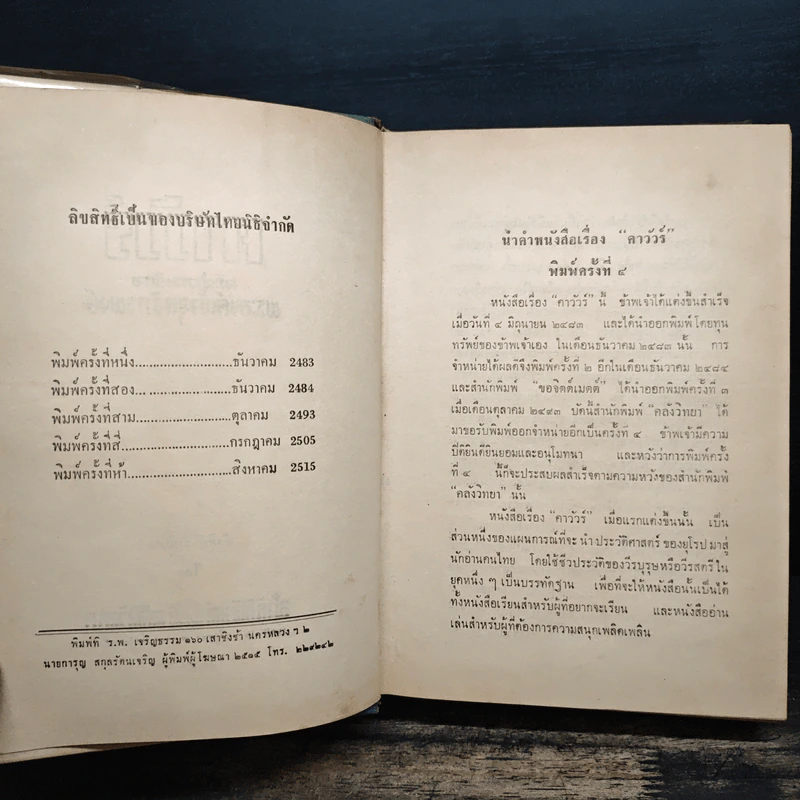 ลิขสิทธิ์เป็นของบริษัทไทยนิธิจำกัด
พิมพ์ครั้งที่หนึ่ง........................ธันวาคม 2483
พิมพ์ครั้งที่สอง........................ธันวาคม 2484
พิมพ์ครั้งที่สาม........................ตุลาคม 2493
พิมพ์ครั้งที่สี่........................กรกฎาคม 2505
พิมพ์ครั้งที่ห้า........................สิงหาคม 2515
พิมพ์ที่ ร.พ. เจริญธรรม ๑๖๐ เสาชิงช้า นครหลวง ฯ ๒
นายการุญ สกุลรัตนเจริญ ผู้พิมพ์ผู้โฆษณา ๒๕๑๕ โทร. ๒๒๙๒๔๒
นำคำหนังสือเรื่อง “คาวัวร์”
พิมพ์ครั้งที่ ๔
หนังสือเรื่อง “คาวัวร์” นี้ ข้าพเจ้าได้แต่งขึ้นสำเร็จ
เมื่อวันที่ ๔ มิถุนายน ๒๔๘๓ และได้นำออกพิมพ์ โดยทุน
ทรัพย์ของข้าพเจ้าเอง ในเดือนธันวาคม ๒๔๘๓ นั้น การ
จำหน่ายได้ผลดีจึงพิมพ์ครั้งที่ ๒ อีกในเดือนธันวาคม ๒๔๘๔
และสำนักพิมพ์ “ขอจิตต์เมตต์” ได้นำออกพิมพ์ครั้งที่ ๓
เมื่อเดือนตุลาคม ๒๔๙๓ บัดนี้สำนักพิมพ์ “คลังวิทยา” ได้
มาขอรับพิมพ์ออกจำหน่ายอีกเป็นครั้งที่ ๔ ข้าพเจ้ามีความ
ปีติยินดียินยอมและอนุโมทนา และหวังว่าการพิมพ์ครั้ง
ที่ ๔ นี้ก็จะประสบผลสำเร็จตามความหวังของสำนักพิมพ์
“คลังวิทยา” นั้น
หนังสือเรื่อง “คาวัวร์” เมื่อแรกแต่งขึ้นนั้น เป็น
ส่วนหนึ่งของแผนการณ์ที่จะ นำ ประวัติศาสตร์ ของยุโรป มาสู่
นักอ่านคนไทย โดยใช้ชีวประวัติของวีรบุรุษหรือวีรสตรี ใน
ยุคหนึ่ง ๆ เป็นบรรทัดฐาน เพื่อที่จะให้หนังสือนั้นเป็นได้
ทั้งหนังสือเรียนสำหรับผู้ที่อยากจะเรียน และหนังสืออ่าน
เล่นสำหรับผู้ที่ต้องการความสนุกเพลิดเพลิน